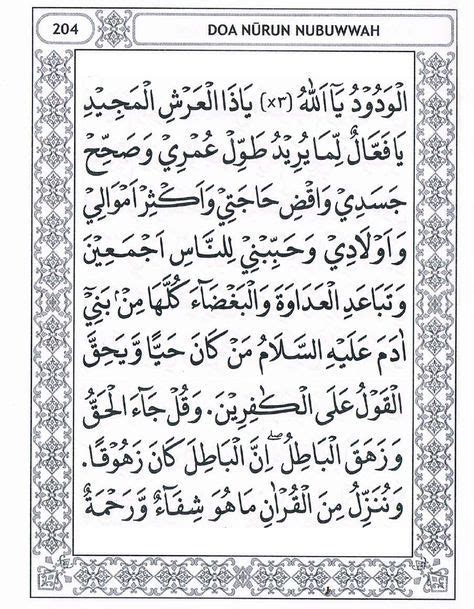 204
DOA NŪRUN NUBUWWAH
الْوَدُوْدُ يَآ اَللّٰهُ (×٣) يَاذَا الْعَرْشِ الْمَجِيْدِ
يَا فَعَّالٌ لِّمَا يُرِيْدُ طَوِّلْ عُمْرِيْ وَصَحِّحْ
جَسَدِيْ وَاقْضِ حَاجَتِيْ وَاَكْثِرْ اَمْوَالِيْ
وَاَوْلَادِيْ وَحَبِّبْنِيْ لِلنَّاسِ اَجْمَعِيْنَ
وَتَبَاعَدِ الْعَدَاوَةَ وَالْبَغْضَآءَ كُلَّهَا مِنْۢ بَنِيْ
اٰدَمَ عَلَيْهِ السَّلَامُ مَنْ كَانَ حَيًّا وَّيَحِقَّ
الْقَوْلُ عَلَى الْكٰفِرِيْنَ. وَقُلْ جَآءَ الْحَقُّ
وَزَهَقَ الْبَاطِلُ ۖ اِنَّ الْبَاطِلَ كَانَ زَهُوْقًا.
وَنُنَزِّلُ مِنَ الْقُرْاٰنِ مَا هُوَ شِفَآءٌ وَّرَحْمَةٌ